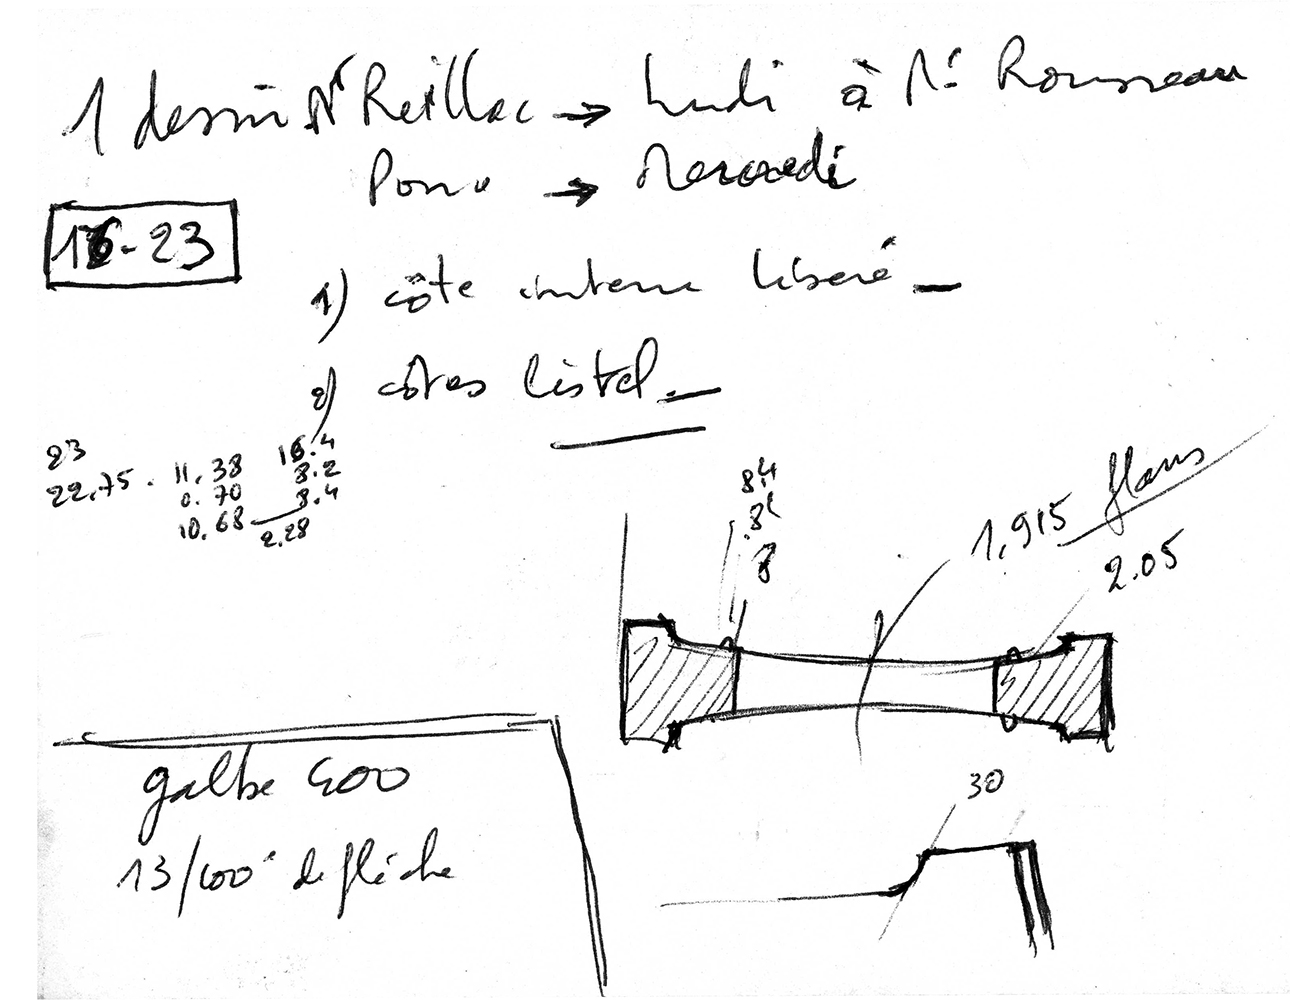 1 dessin Mr Reillac → lundi à Mr Rousseau
Pour → Mercredi
16-23
1) côte interne liseré -
2) côtes listel -
23
22,75 . 11,38 16.4
0.70 8.2
10,68 8.4
2.28
8.4
8
1,915 flans
2.05
galbe 400
13/100° de flèche
30